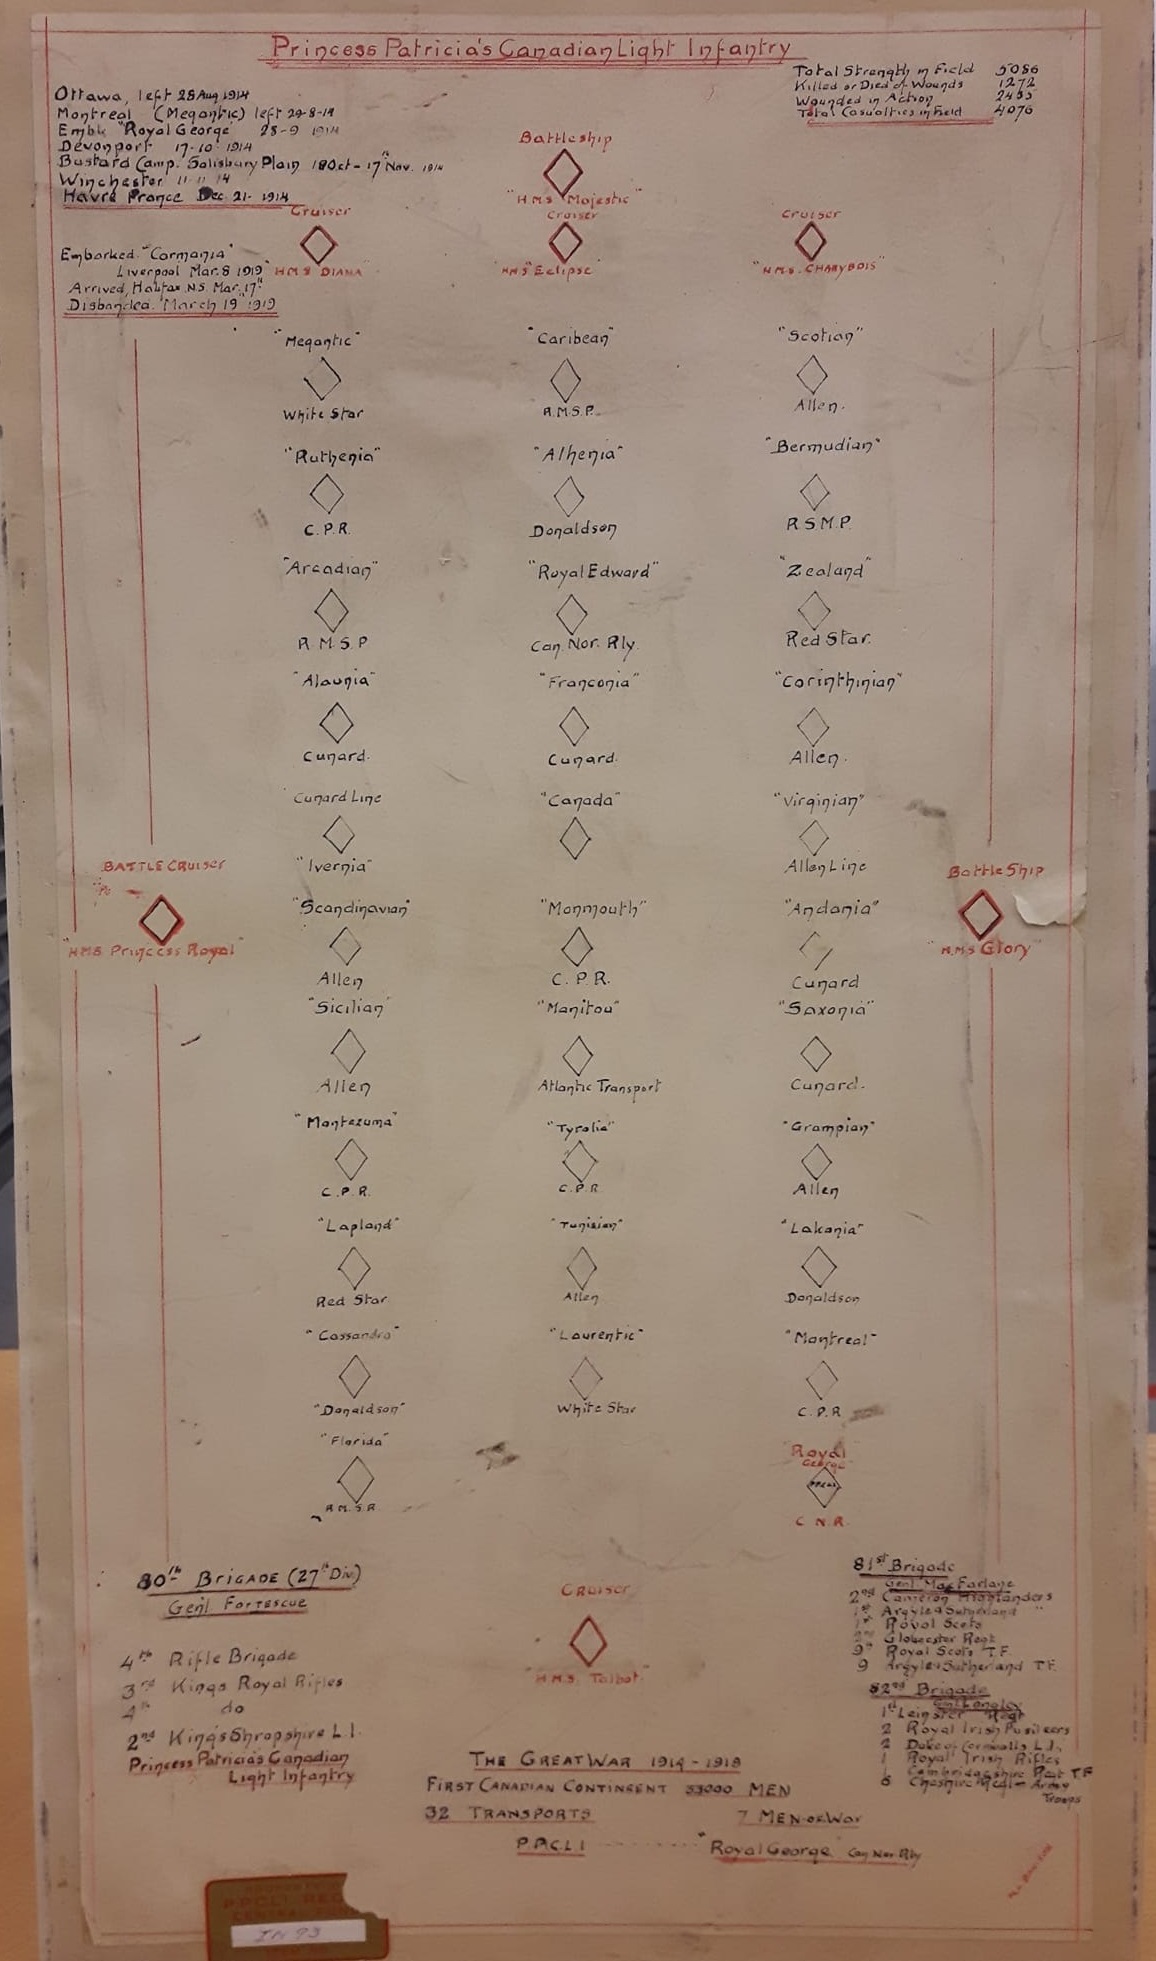 Princess Patricia's Canadian Light Infantry
Total Strength in Field 5086
Killed or Died of Wounds 1272
Wounded in Action
Total Casualties in Field 4076
Ottawa, left 28 Aug 1914
Montreal (Megantic) left 29-8-14
Embk "Royal George" 28-9 1914
Devonport 17-10-1914
Bustard Camp. Salisbury Plain 18 Oct - 17th Nov. 1914
Winchester 11-11 14
Havre France Dec. 21- 1914
Embarked "Carmania"
Liverpool Mar. 8 1919
Arrived, Halifax N.S. Mar. 17th
Disbanded. March 19th 1919
Battleship
"HMS Majestic"
Cruiser
HMS DIANA"
Cruiser
HMS "Eclipse"
Cruiser
"H.M.S. CHARYBDIS"
"Megantic" "Caribean" "Scotian"
White Star R.M.S.P. Allen.
"Ruthenia" "Athenia" "Bermudian"
C.P.R. Donaldson R.S.M.P.
"Arcadian" "Royal Edward" "Zealand"
R.M.S.P Can. Nor. Rly. Red Star.
"Alaunia" "Franconia" "Corinthinian"
Cunard. Cunard. Allen.
Cunard Line "Canada" "Virginian"
"Ivernia" Allen Line
"Scandinavian" "Monmouth" "Andania"
Allen C.P.R. Cunard
"Sicilian" "Manitou" "Saxonia"
Allen Atlantic Transport Cunard.
"Montezuma" "Tyrolia" "Grampian"
C.P.R. C.P.R Allen
"Lapland" "Tunisian" "Lakonia"
Red Star Allen Donaldson
"Cassandra" "Laurentic" "Montreal"
"Donaldson" White Star C.P.R
"Florida" Royal
George
PPCLI
R.M.S.P. C.N.R.
BATTLE CRUISER
"HMS Princess Royal"
Battle Ship
"H.M.S Glory"
80th BRIGADE (27th Div.)
Genl FORTESCUE
4th Rifle Brigade
3rd Kings Royal Rifles
4th do
2nd King's Shropshire L.I.
Princess Patricia's Canadian
Light Infantry
CRUISER
"H.M.S. Talbot"
81st Brigade
Genl MacFarlane
2nd Cameron Highlanders
1st Argyle & Sutherland "
1st Royal Scots
2nd Gloucester Regt
9th Royal Scots T.F.
9 Argyle & Sutherland T.F.
82nd Brigade
Genl Longley
1st Leinster Regt
2 Royal Irish Fusileers
2 Duke of Cornwalls L.I.
1 Royal Irish Rifles
1 Cambridgeshire Regt T F
6 Cheshire Regt - Army
Troops
THE GREAT WAR 1914 - 1919
FIRST CANADIAN CONTINGENT 33000 MEN
32 TRANSPORTS 7 MEN-OF-WAR
P.P.C.L.I "Royal George Can Nor. Rly
PROPERTY OF
PPCLI REG